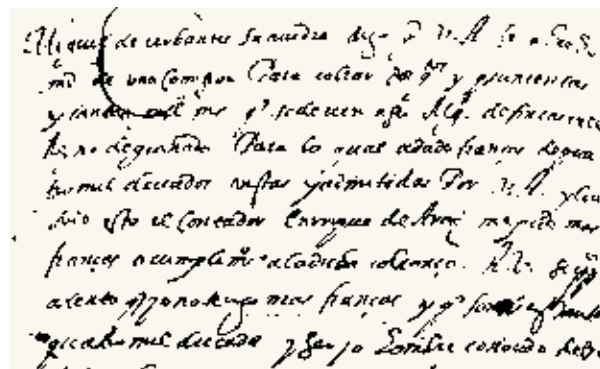 Miguel de cerbantes saavedra digo q V. A. me a hecho
md de una comision Para cobrar dos qos y quinientas
y tantas mill ms q se deven a su Al.
Rno de granada Para lo qual e dado fianças de qua
tro mil ducados vistas y admitidas Por V. A. y con
esto el Contador Enrique de me pide mas
fianças a cumplimito a la dicha cobrança. A V. A.
atento q yo no tengo mas fianças y q son
quatro mil ducados y ser yo hombre conocido de